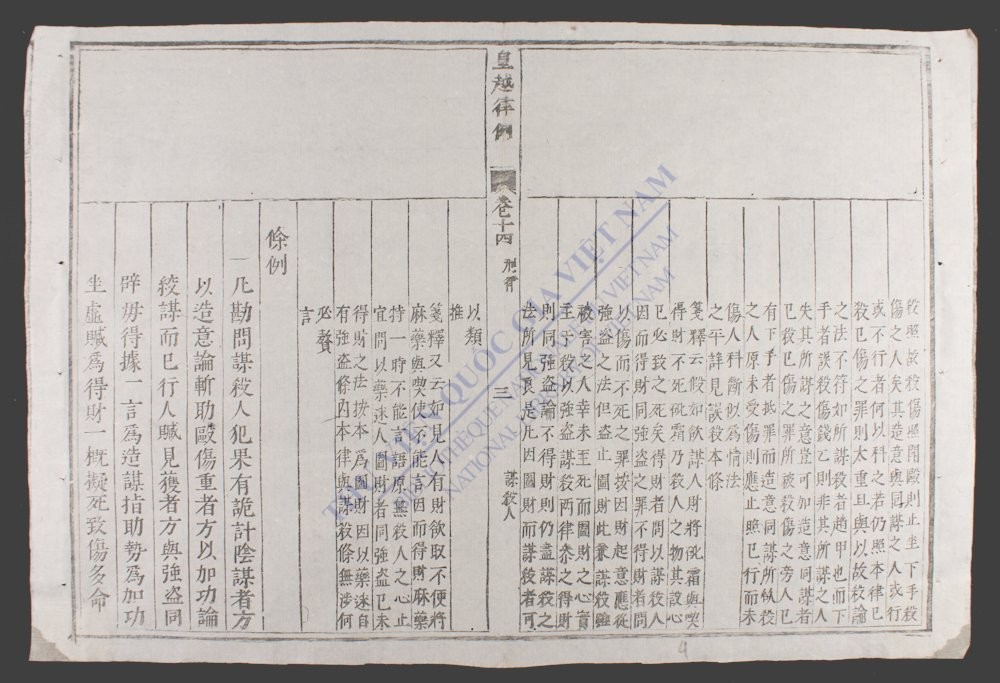 殺照故殺傷照鬪毆則止坐下手殺
傷之人矣其造意與同謀之人或行
或不行者何以科之若仍照本律已
殺已傷之罪則太重且與以故殺論
之法不符如所謀殺者趙甲也而下
手者誤殺傷錢乙則非其所謀之人
失其所謀之意豈可如造意同謀者
已殺已傷之罪乎被殺傷之旁人已
有下手者抵罪而造意同謀所欲殺
之人原未受傷則應止照已行而未
傷人科斷似爲情法
之平詳見誤殺本條
箋釋云假如飲謀人財將砒霜與喫
得財不死砒霜乃殺人之物其設心
已必致之死矣得財者問以謀殺人
因而得財法同強盜罪不得財者問
以傷而不死之罪按因財起意應從
強盜之法但盜止圖財此兼謀殺雖
被害之人幸未至死而圖財之心實
主于殺以強盜謀殺兩律叅之得財
則同強盜論不得財則仍盡謀殺之
法所見良是凡因圖財而謀殺者可
皇越律例 卷十四 刑律 三 謀殺人
以類
推
箋釋又云如見人有財欲取不便將
麻藥與喫使不能言因而得財麻藥
持一時不能言語原無殺人之心止
宜問以藥迷人圖財者同強盜已未
得財之法按本爲圖財因以藥迷自
有強盜條內本律與謀殺條無涉何
必贅
言
條例
一凡勘問謀殺人犯果有詭計陰謀者方
以造意論斬助毆傷重者方以加功論
絞謀而已行人贓見獲者方與強盜同
辟毋得據一言爲造謀指助勢爲加功
坐虛贓爲得財一概擬死致傷多命
THƯ VIỆN QUỐC GIA VIỆT NAM
BIBLIOTHÈQUE NATIONALE DU VIETNAM
NATIONAL LIBRARY OF VIETNAM
9